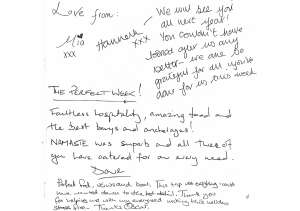 Love from:
Mia
xxx
Hannah
xxx
We will see you
all next year!
You couldn't have
looked after us any
better - we are so
grateful for all you've
done for us this week
THE PERFECT WEEK!
Faultless hospitality, amazing food and
the best bays and anchorages!
NAMASTE was superb and all three of
you have catered for our every need.
Dave
Perfect food, crew and boat. This trip was everything I could
have wanted down to the last detail. Thank you
for helping me with my
stress free. Thanks